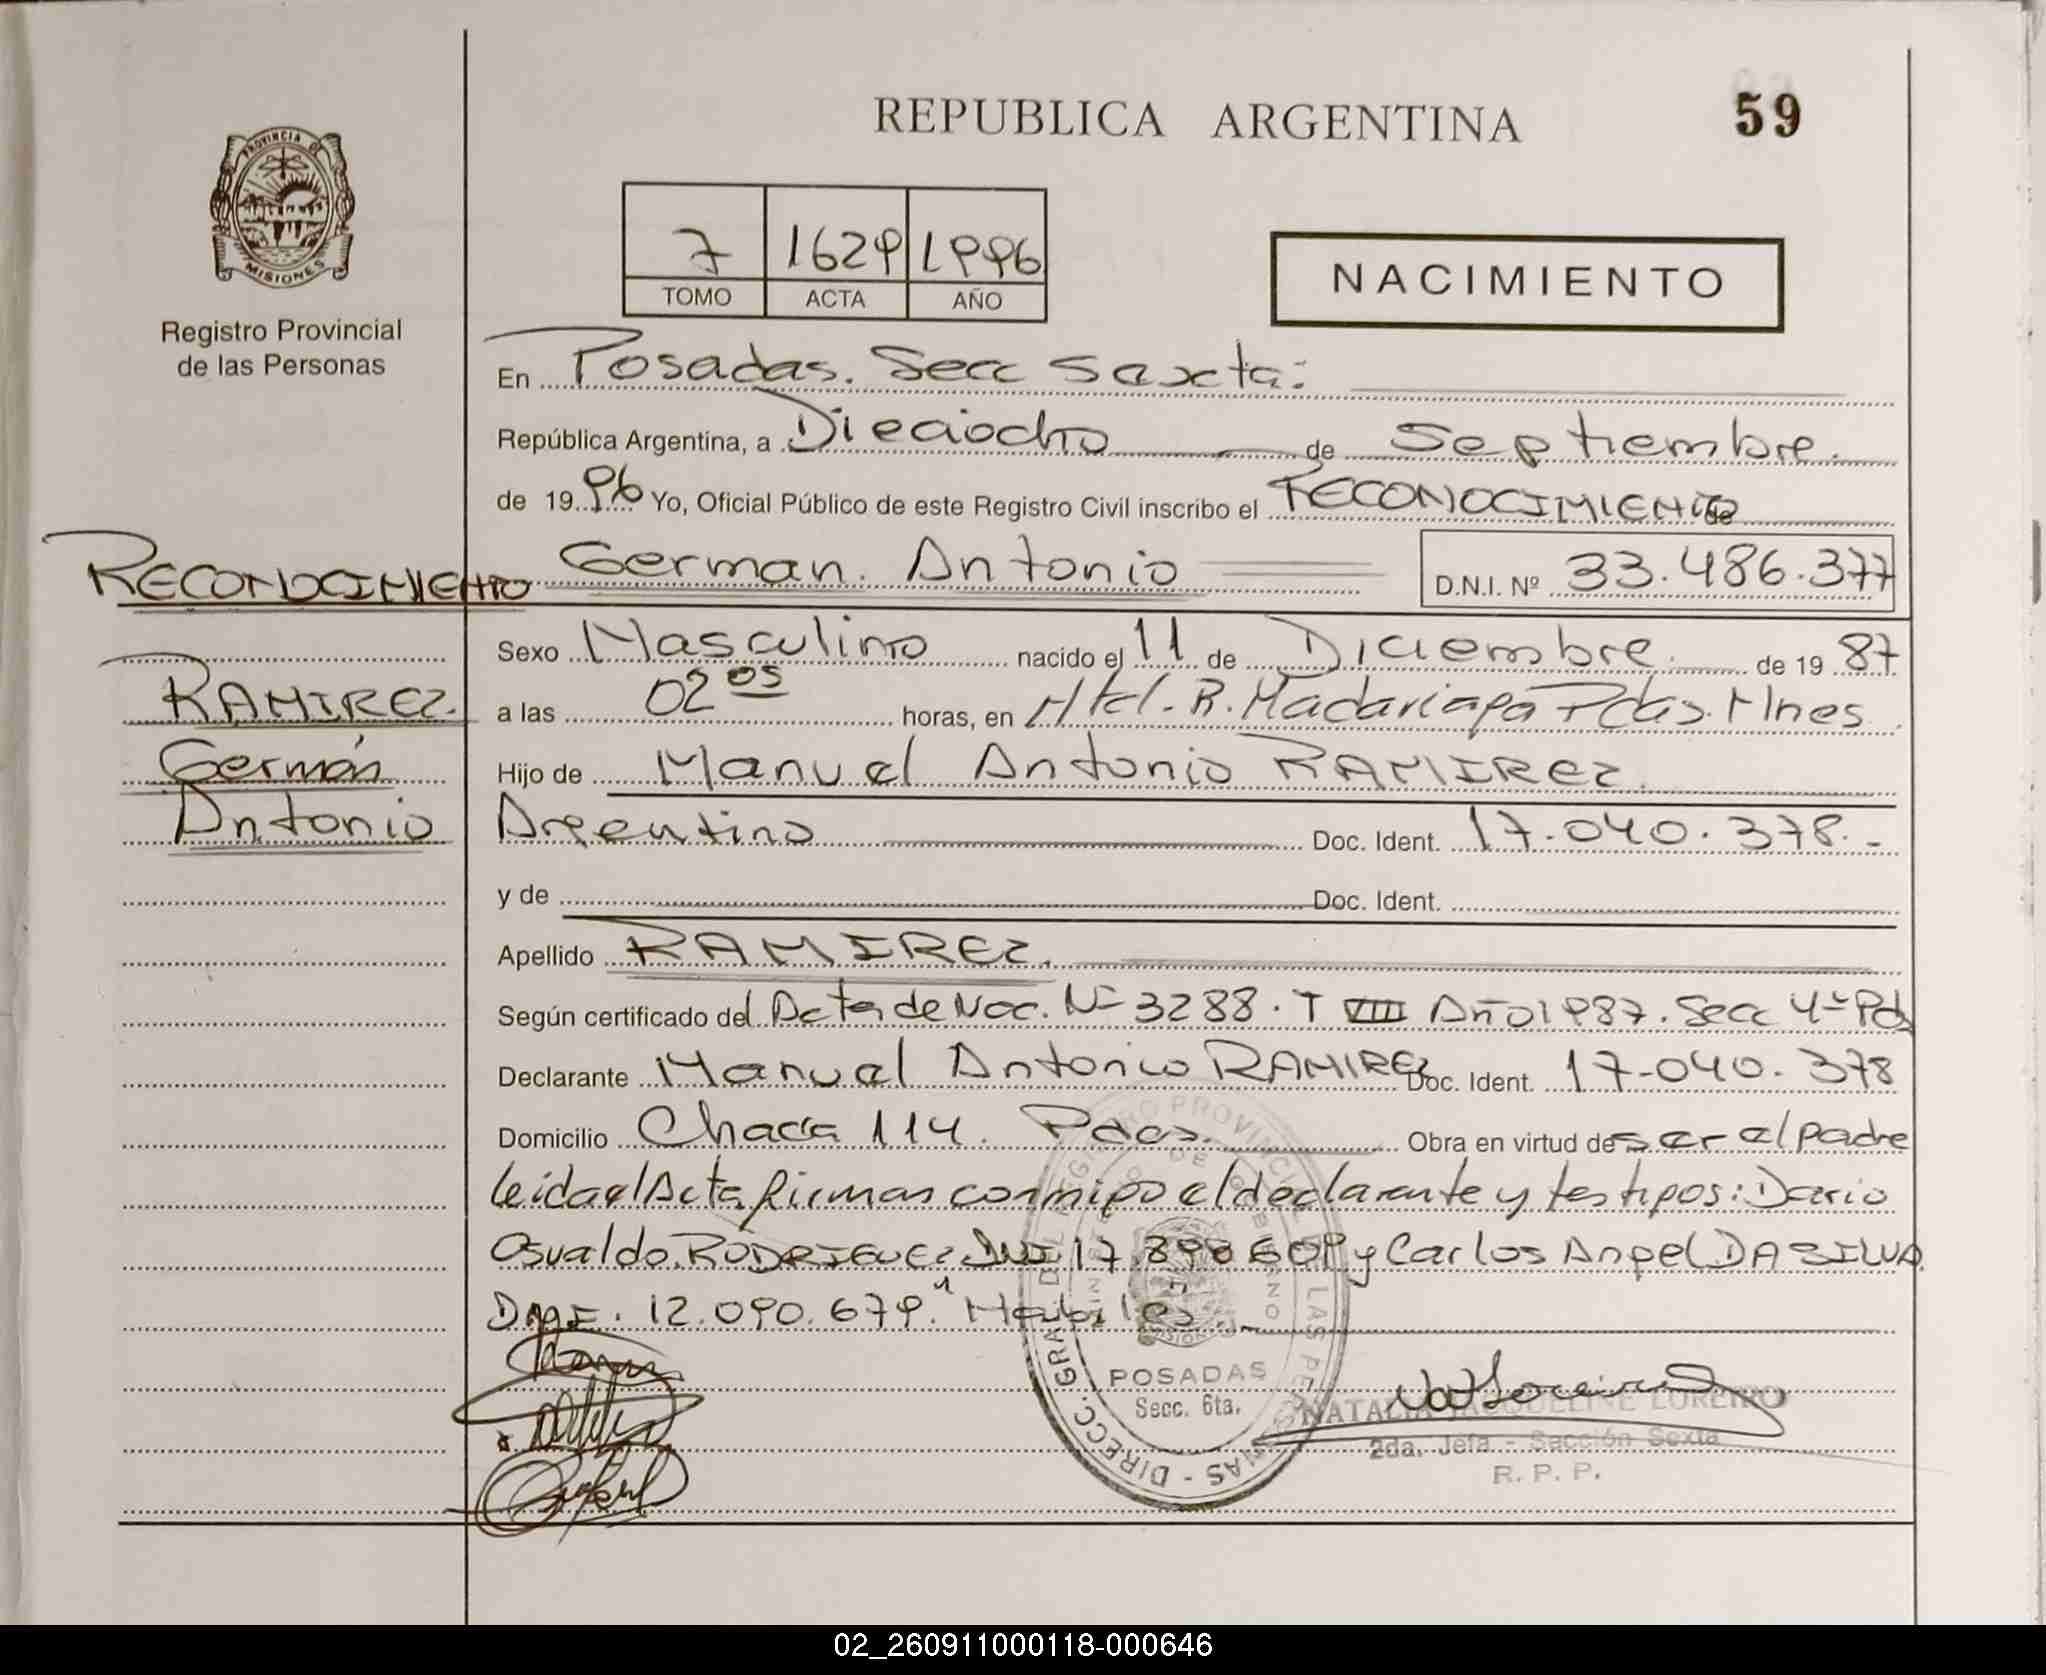 REPUBLICA ARGENTINA
59
PROVINCIA DE
MISIONES
Registro Provincial
de las Personas
7 1629 1996
TOMO ACTA AÑO
NACIMIENTO
En Posadas. Secc Sexta:
República Argentina, a Dieciocho de Septiembre.
de 1996 Yo, Oficial Público de este Registro Civil inscribo el RECONOCIMIENTO de
German Antonio D.N.I. Nº 33.486.377
RECONOCIMIENTO
RAMIREZ.
Germán
Antonio
Sexo Masculino nacido el 11 de Diciembre. de 19 87
a las 02 05 horas, en Htel. R. Madariaga Pdas. Mnes.
Hijo de Manuel Antonio RAMIREZ.
Argentino Doc. Ident. 17.040.378.-
y de Doc. Ident.
Apellido RAMIREZ.
Según certificado del Acta de Nac. Nº 3288. T VIII Año 1987. Secc 4ª Pds
Declarante Manuel Antonio RAMIREZ Doc. Ident. 17.040.378
Domicilio Chacra 114. Pdas. Obra en virtud de ser el padre
leida el Acta firman conmigo el declarante y testigos: Dario
Osvaldo. RODRIGUEZ DNI 17.890.609 y Carlos Angel DA SILVA.
DNI. 12.090.679. Habiles
DIRECC. GRAL. DEL REGISTRO PROVINCIAL DE LAS PERSONAS
POSADAS
Secc. 6ta.
NATALIA JACQUELINE LOREIRO
2da. Jefa - Sección Sexta
R. P. P.
02_260911000118-000646